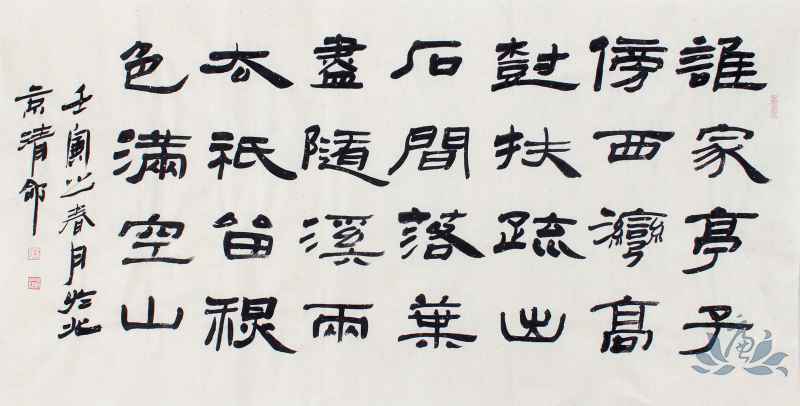 誰家亭子
傍西灣高
尌扶疏出
石間落葉
盡隨溪雨
去祇留秋
色滿空山
壬寅之春月於北
京清